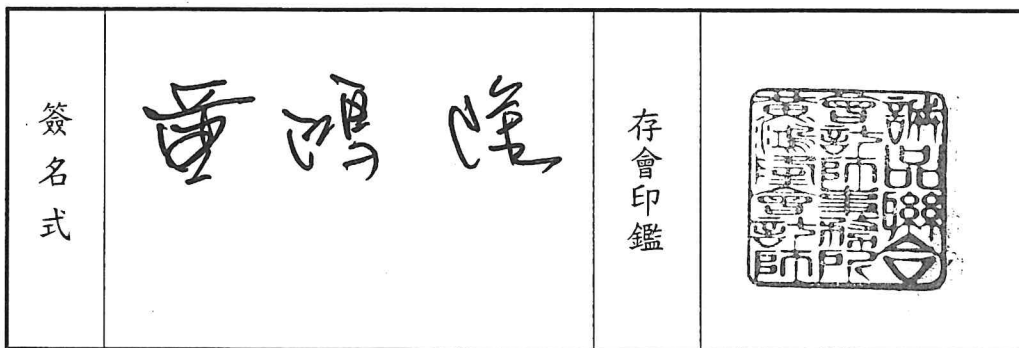 簽名式
黃鴻隆
存會印鑑
誠品聯合
會計師事務所
黃鴻隆會計師